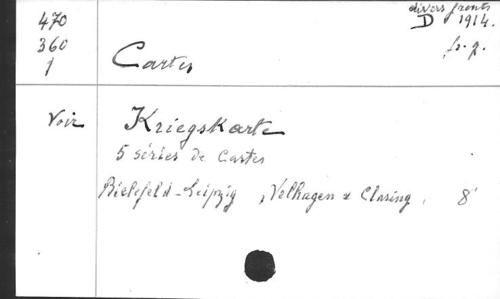 470
360
1
divers fronts
D 1914.
fr. g.
Cartes
Voir Kriegskarte
5 séries de Cartes
Bielefeld-Leipzig, Velhagen & Clasing, 8°